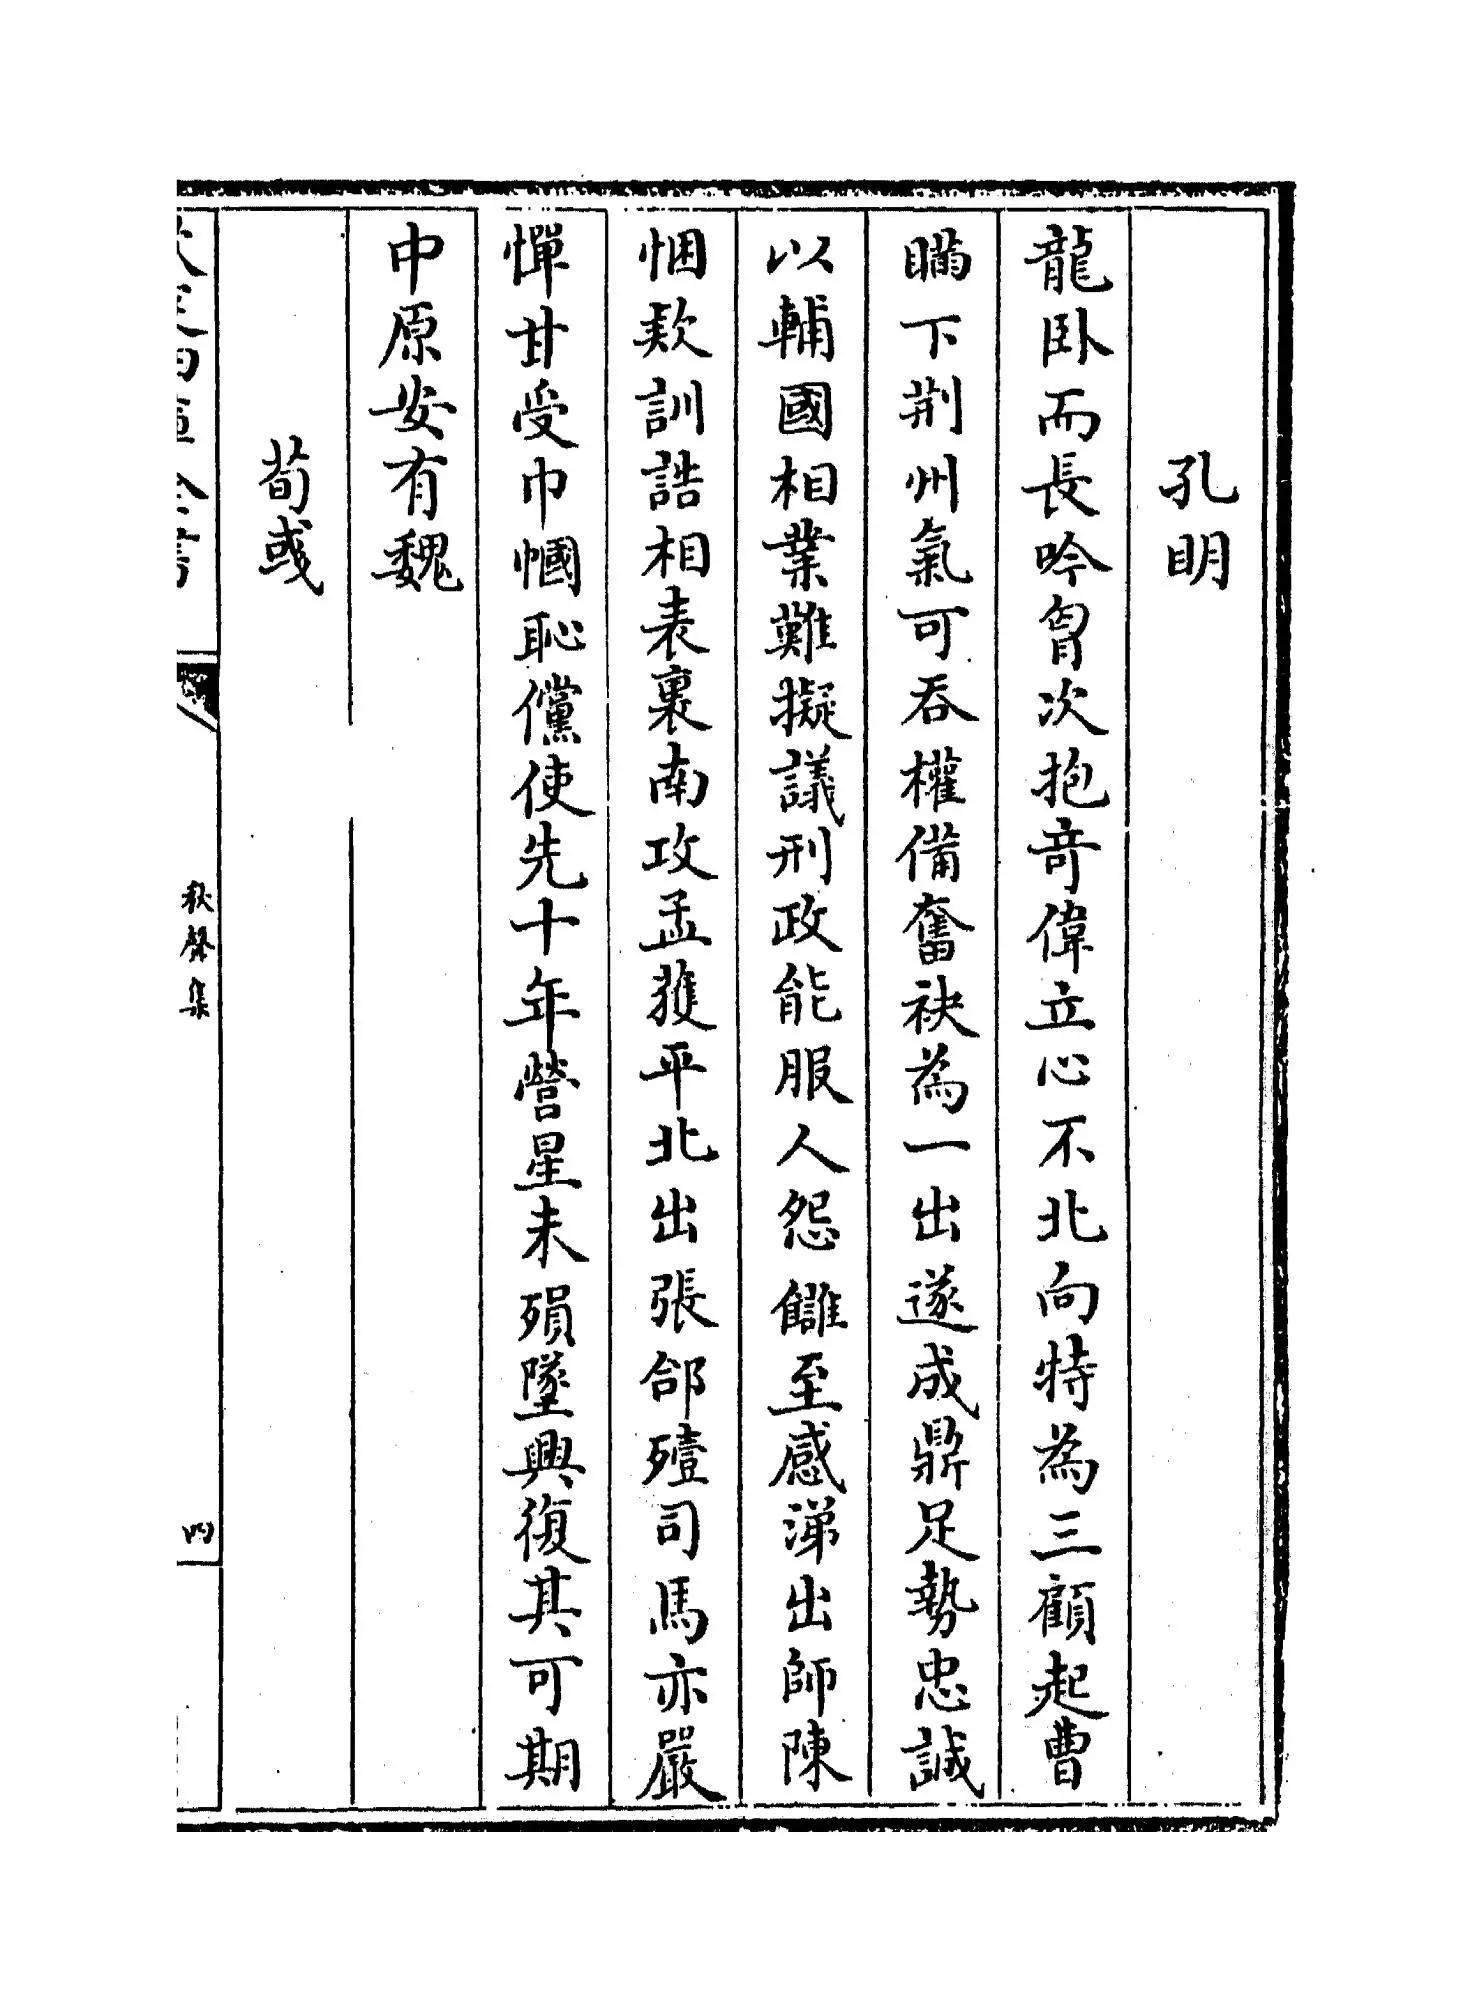 孔明
龍卧而長吟胷次抱竒偉立心不北向特為三顧起曹
瞞下荆州氣可吞權備奮袂為一出遂成鼎足勢忠誠
以輔國相業難擬議刑政能服人怨讎至感涕出師陳
悃欵訓誥相表裏南攻孟獲平北出張郃殪司馬亦嚴
憚甘受巾幗恥儻使先十年營星未殞墜興復其可期
中原安有魏
荀彧
秋聲集
四